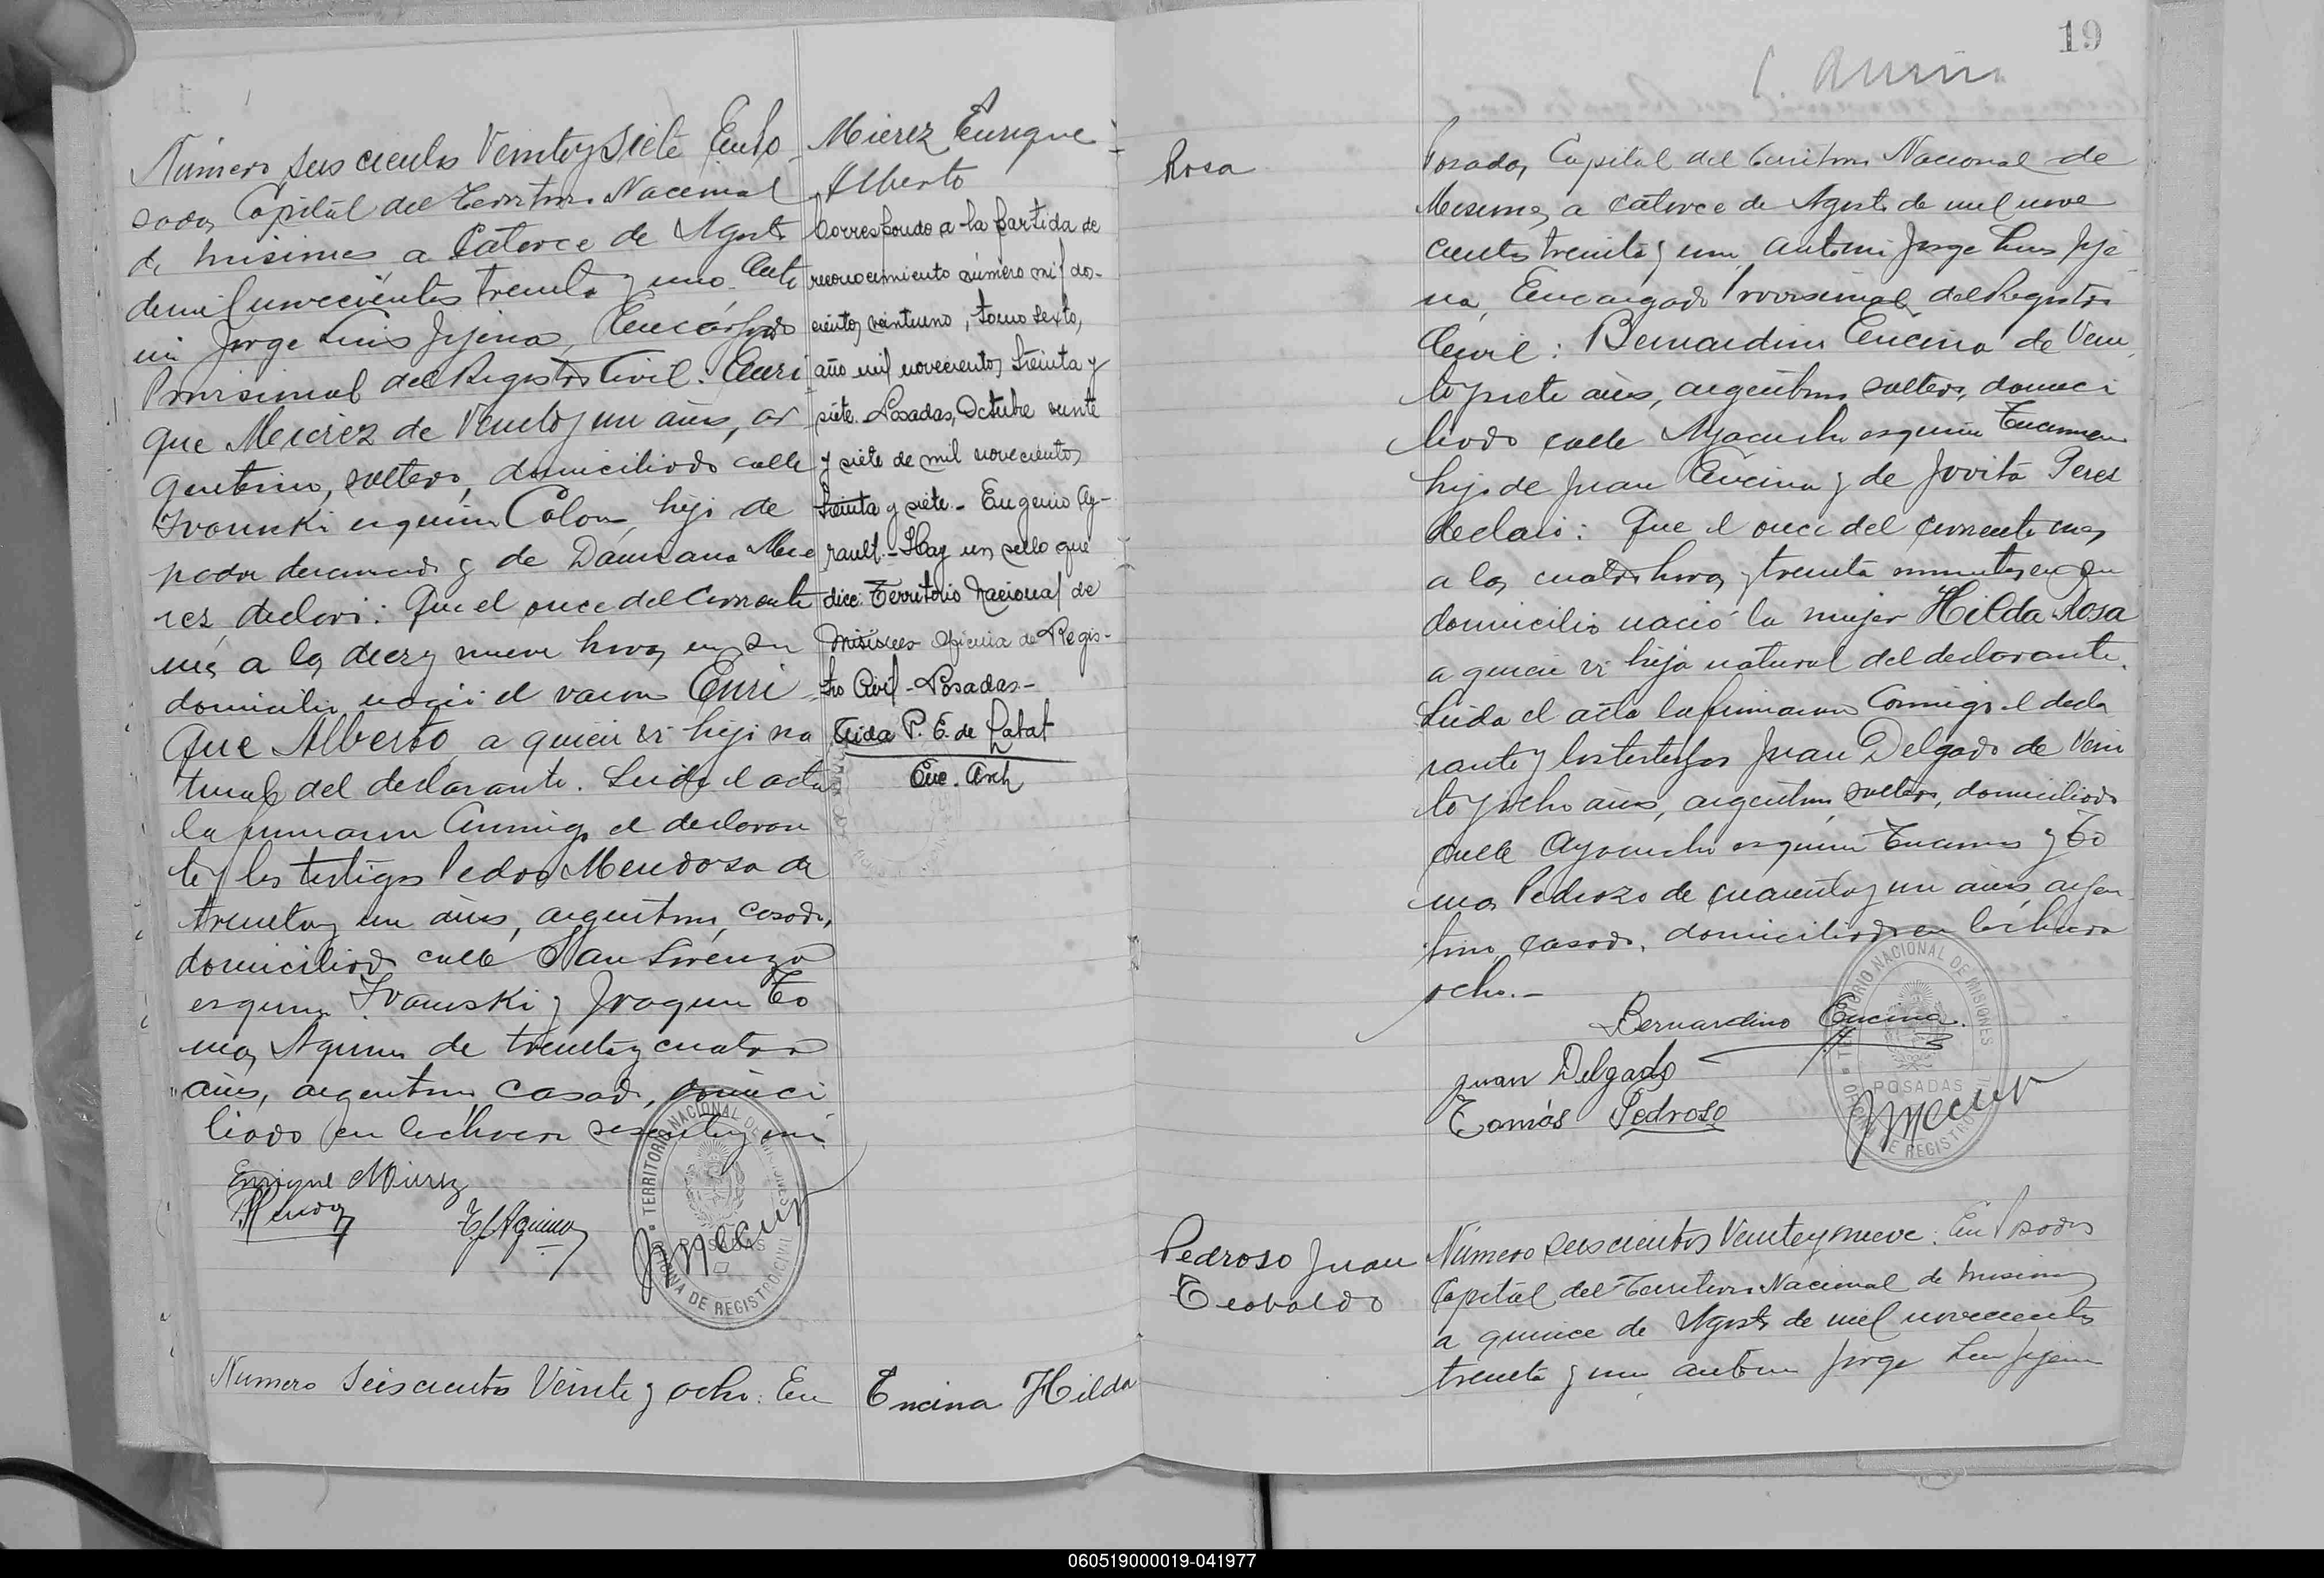 Número seiscientos Veinte y Siete En Po
sadas Capital del Territorio Nacional
de Misiones a Catorce de Agosto
de mil novecientos treinta y uno. Ante
mi Jorge Luis Jejena, Encargado
Provisional del Registro Civil: Enri
que Meirez de Veinte y un años, ar
gentino, soltero, domiciliado calle
Ivanuski esquina Colon, hijo de
padre desconocido y de Damiana Mie
rez, declaró: Que el once del corriente
mes a las diez y nueve horas en su
domicilio nació el varon Enri
que Alberto, a quien es hijo na
tural del declarante. Leida el acta
la firmaron Conmigo el declaran
te y los testigos Pedro Mendoza de
treinta y un años, argentino, casado,
domiciliado calle San Lorenzo
esquina Ivanuski y Joaquin To
mas Aquino de treinta y cuatro
años, argentino, casado, domici
liado en la chacra sesenta y uno
Enrique Mierez
PMendoza
TJAquino
TERRITORIO NACIONAL DE MISIONES
POSADAS
OFICINA DE REGISTRO CIVIL
Numero Seiscientos Veinte y ocho: En
Mierez Enrique
Alberto
Correspondo a la partida de
reconocimiento número mil dos-
cientos veintiuno, tomo sexto,
año mil novecientos treinta y
siete. Posadas, Octubre veinte
y siete de mil novecientos
treinta y siete.- Eugenio Ay-
rault.- Hay un sello que
dice: Territorio Nacional de
Misiones Oficina de Regis-
tro Civil - Posadas -
P. E. de Labat
Enc. Arch
Encina Hilda
19
Rosa
Posadas, Capital del Territorio Nacional de
Misiones, a catorce de Agosto de mil nove
cientos treinta y uno, ante mi Jorge Luis Jeje
na, Encargado Provisional del Registro
Civil: Bernardino Encina de Vein
te y siete años, argentino, soltero, domici
liado calle Ayacucho esquina Tucuman
hijo de Juan Encina y de Jovita Peres
declaró: Que el once del corriente mes
a las cuatro horas y treinta minutos en su
domicilio nació la mujer Hilda Rosa
a quien es hija natural del declarante.
Leida el acta la firmaron Conmigo el decla
rante y los testigos Juan Delgado de Vein
te y ocho años, argentino, soltero, domiciliado
calle Ayacucho esquina Tucuman y To
mas Pedrozo de cuarenta y un años argen
tino, casado, domiciliado en la chacra
ocho.-
Bernardino Encina.
Juan Delgado
Tomás Pedroso
TERRITORIO NACIONAL DE MISIONES
POSADAS
OFICINA DE REGISTRO CIVIL
Pedroso Juan
Teobaldo
Número seiscientos Veinte y nueve: En Posadas
Capital del Territorio Nacional de Misiones
a quince de Agosto de mil novecientos
treinta y uno ante mi Jorge Luis Jejena
060519000019-041977